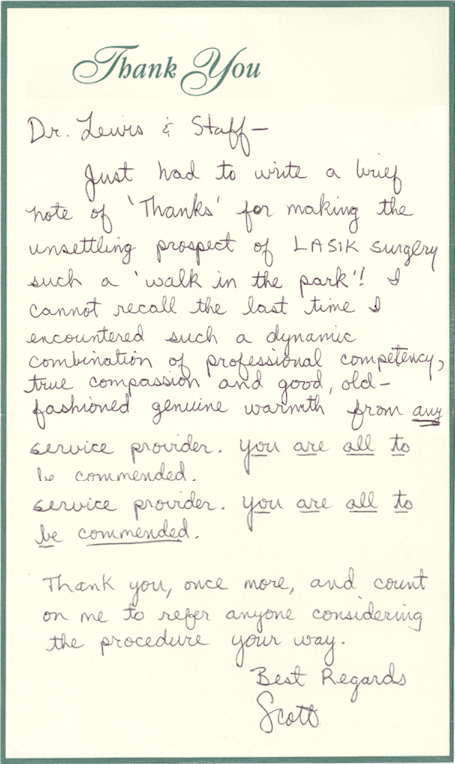 Thank You
Dr. Lewis & Staff—
Just had to write a brief
note of 'Thanks' for making the
unsettling prospect of LASIK surgery
such a 'walk in the park'! I
cannot recall the last time I
encountered such a dynamic
combination of professional competency,
true compassion and good, old-
fashioned genuine warmth from any
service provider. You are all to
be commended.
service provider. You are all to
be commended.
Thank you, once more, and count
on me to refer anyone considering
the procedure your way.
Best Regards
Scott